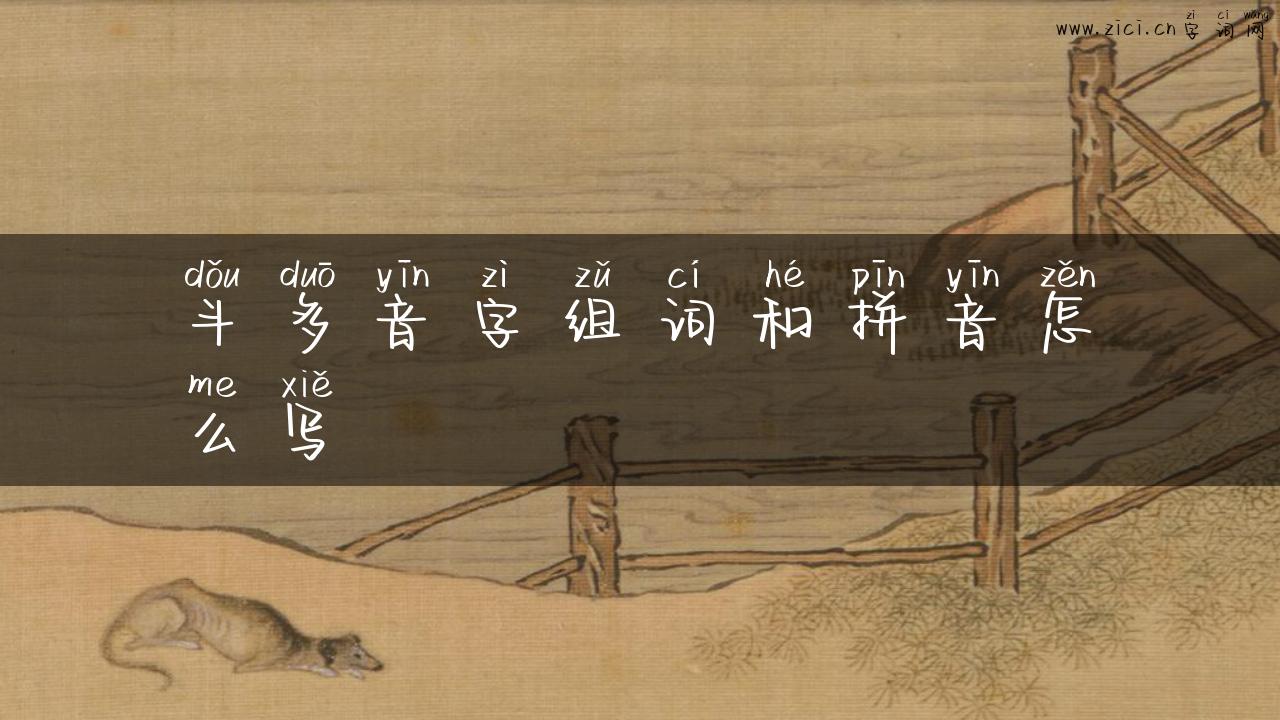 zì cí wǎng
www.zici.cn字词网
dǒu duō yīn zì zǔ cí hé pīn yīn zěn
斗多音字组词和拼音怎
me xiě
么写